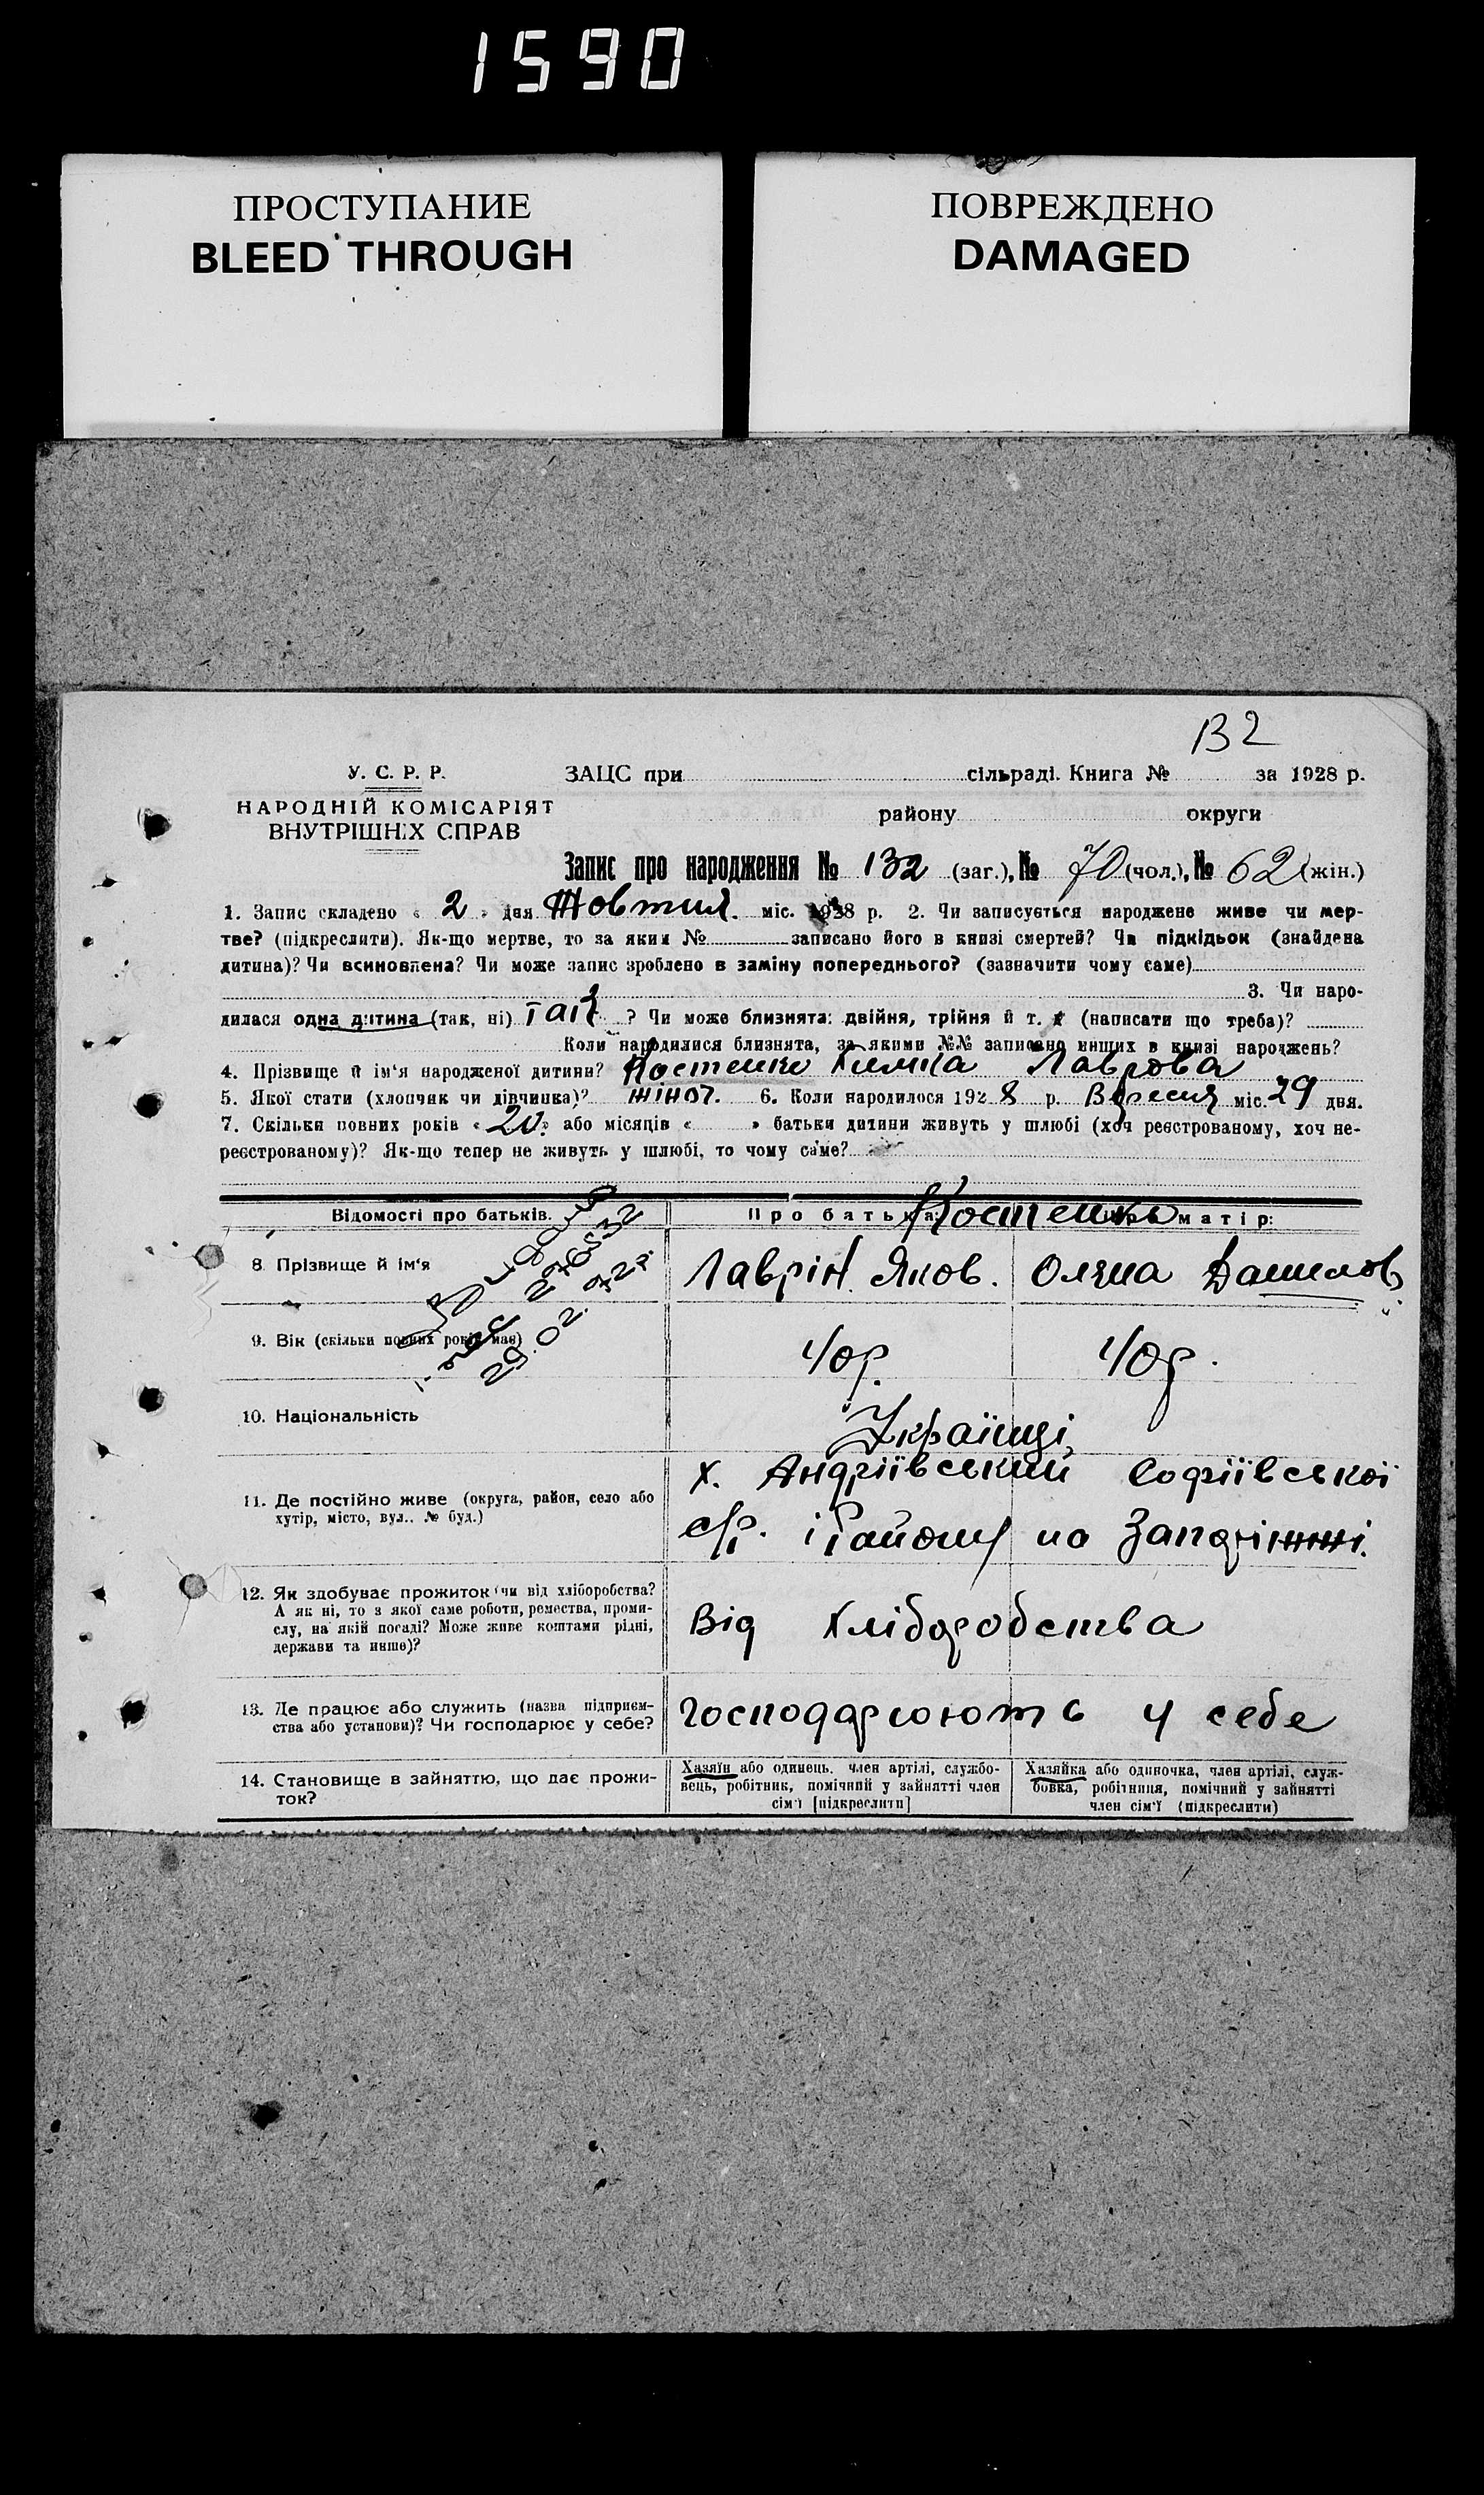 1590
ПРОСТУПАНИЕ
BLEED THROUGH
ПОВРЕЖДЕНО
DAMAGED
132
У. С. Р. Р.
НАРОДНІЙ КОМІСАРІЯТ
ВНУТРІШНІХ СПРАВ
ЗАЦС при сільраді. Книга № за 1928 р.
району округи
Запис про народження № 132 (заг.), № 70 (чол.), № 62 (жін.)
1. Запис складено « 2 » дня Жовтня міс. 1928 р. 2. Чи записується народжене живе чи мер-
тве? (підкреслити). Як-що мертве, то за яким № записано його в книзі смертей? Чи підкідьок (знайдена
дитина)? Чи всиновлена? Чи може запис зроблено в заміну попереднього? (зазначити чому саме)
3. Чи наро-
дилася одна дитина (так, ні) Так ? Чи може близнята: двійня, трійня й т. (написати що треба)?
Коли народилися близнята, за якими №№ записано инших в книзі народжень?
4. Прізвище й ім'я народженої дитини? Костенко Лаврова
5. Якої стати (хлопчик чи дівчинка)? жіноч. 6. Коли народилося 1928 р. Вересня міс. 29 дня.
7. Скільки повних років « 20 » або місяців « » батьки дитини живуть у шлюбі (хоч реєстрованому, хоч не-
реєстрованому)? Як-що тепер не живуть у шлюбі, то чому саме?
Відомості про батьків. Про батька: матір:
Костенко
8. Прізвище й ім'я Лаврін Яков. Олена Данилов
276532
29.02.72г.
9. Вік (скільки повних років має) 40р. 40р.
10. Національність Українці
11. Де постійно живе (округа, район, село або
хутір, місто, вул.. № буд.)
х. Андріївський Софіївської
с/р. і Району на Запоріжжі.
12. Як здобуває прожиток чи від хліборобства?
А як ні, то з якої саме роботи, ремества, проми-
слу, на якій посаді? Може живе коштами рідні,
держави та инше)?
Від хліборобства
13. Де працює або служить (назва підприєм-
ства або установи)? Чи господарює у себе?
Господарюють у себе
14. Становище в зайняттю, що дає прожи-
ток?
Хазяїн або одинець. член артілі, службо-
вець, робітник, помічний у зайнятті член
сім'ї [підкреслити]
Хазяйка або одиночка, член артілі, служ-
бовка, робітниця, помічний у зайнятті
член сім'ї (підкреслити)